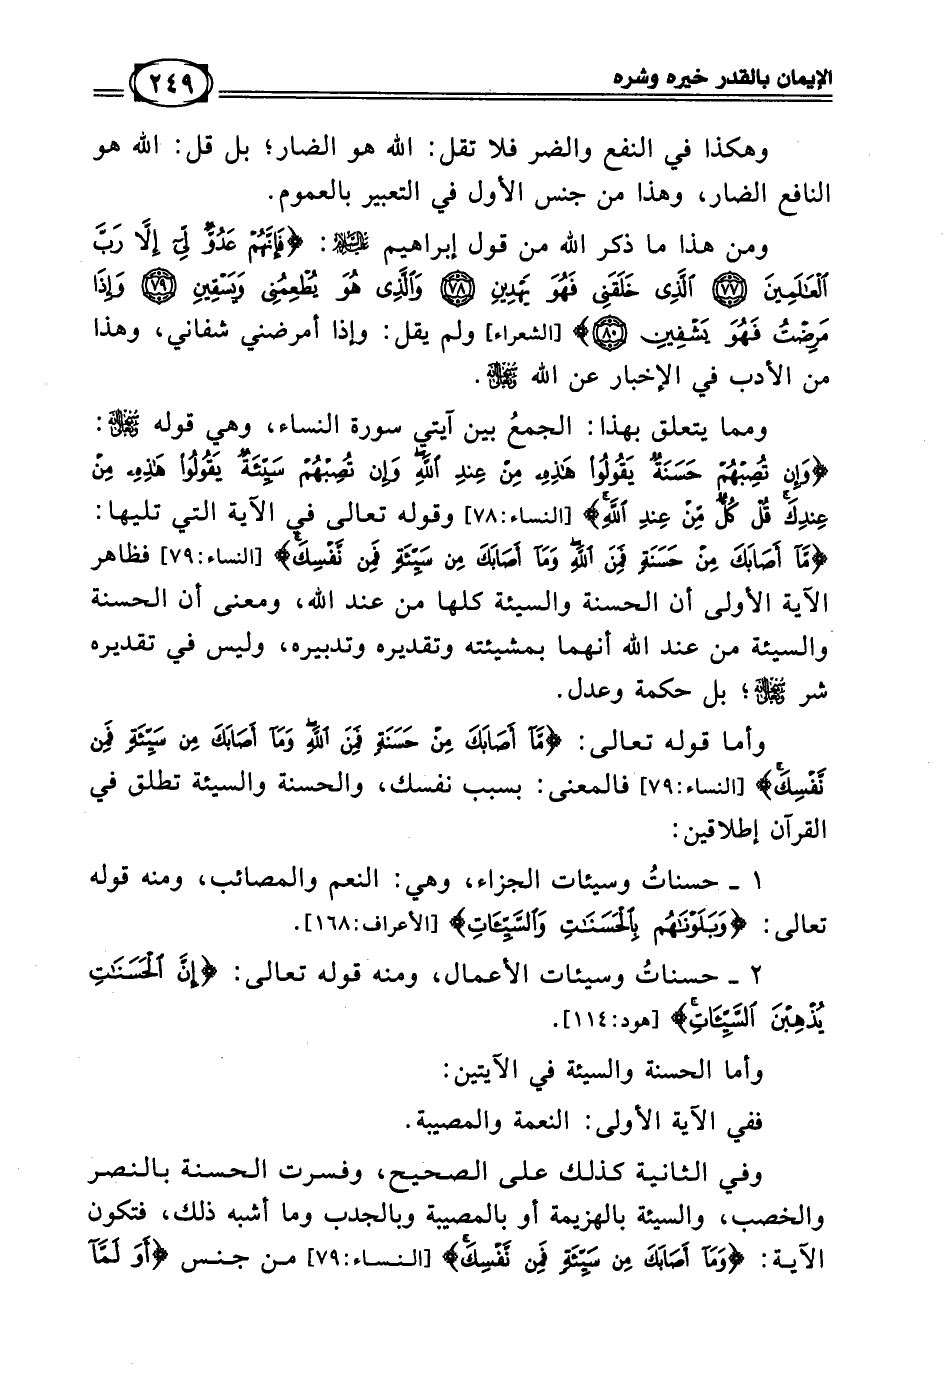 الإيمان بالقدر خيره وشره
٢٤٩
وهكذا في النفع والضر فلا تقل: الله هو الضار؛ بل قل: الله هو
النافع الضار، وهذا من جنس الأول في التعبير بالعموم.
ومن هذا ما ذكر الله من قول إبراهيم عليه السلام: ﴿فَإِنَّهُمْ عَدُوٌّ لِّي إِلَّا رَبَّ
الْعَالَمِينَ ۝٧٧ الَّذِي خَلَقَنِي فَهُوَ يَهْدِينِ ۝٧٨ وَالَّذِي هُوَ يُطْعِمُنِي وَيَسْقِينِ ۝٧٩ وَإِذَا
مَرِضْتُ فَهُوَ يَشْفِينِ ۝٨٠﴾ [الشعراء] ولم يقل: وإذا أمرضني شفاني، وهذا
من الأدب في الإخبار عن الله ﷻ.
ومما يتعلق بهذا: الجمعُ بين آيتي سورة النساء، وهي قوله ﷻ:
﴿وَإِن تُصِبْهُمْ حَسَنَةٌ يَقُولُوا هَذِهِ مِنْ عِندِ اللَّهِ وَإِن تُصِبْهُمْ سَيِّئَةٌ يَقُولُوا هَذِهِ مِنْ
عِندِكَ قُلْ كُلٌّ مِّنْ عِندِ اللَّهِ﴾ [النساء:٧٨] وقوله تعالى في الآية التي تليها:
﴿مَّا أَصَابَكَ مِنْ حَسَنَةٍ فَمِنَ اللَّهِ وَمَا أَصَابَكَ مِن سَيِّئَةٍ فَمِن نَّفْسِكَ﴾ [النساء:٧٩] فظاهر
الآية الأولى أن الحسنة والسيئة كلها من عند الله، ومعنى أن الحسنة
والسيئة من عند الله أنهما بمشيئته وتقديره وتدبيره، وليس في تقديره
شر ﷻ؛ بل حكمة وعدل.
وأما قوله تعالى: ﴿مَّا أَصَابَكَ مِنْ حَسَنَةٍ فَمِنَ اللَّهِ وَمَا أَصَابَكَ مِن سَيِّئَةٍ فَمِن
نَّفْسِكَ﴾ [النساء:٧٩] فالمعنى: بسبب نفسك، والحسنة والسيئة تطلق في
القرآن إطلاقين:
١ ـ حسناتُ وسيئات الجزاء، وهي: النعم والمصائب، ومنه قوله
تعالى: ﴿وَبَلَوْنَاهُم بِالْحَسَنَاتِ وَالسَّيِّئَاتِ﴾ [الأعراف:١٦٨].
٢ ـ حسناتُ وسيئات الأعمال، ومنه قوله تعالى: ﴿إِنَّ الْحَسَنَاتِ
يُذْهِبْنَ السَّيِّئَاتِ﴾ [هود:١١٤].
وأما الحسنة والسيئة في الآيتين:
ففي الآية الأولى: النعمة والمصيبة.
وفي الثانية كذلك على الصحيح، وفسرت الحسنة بالنصر
والخصب، والسيئة بالهزيمة أو بالمصيبة وبالجدب وما أشبه ذلك، فتكون
الآية: ﴿وَمَا أَصَابَكَ مِن سَيِّئَةٍ فَمِن نَّفْسِكَ﴾ [النساء:٧٩] من جنس ﴿أَوَ لَمَّا